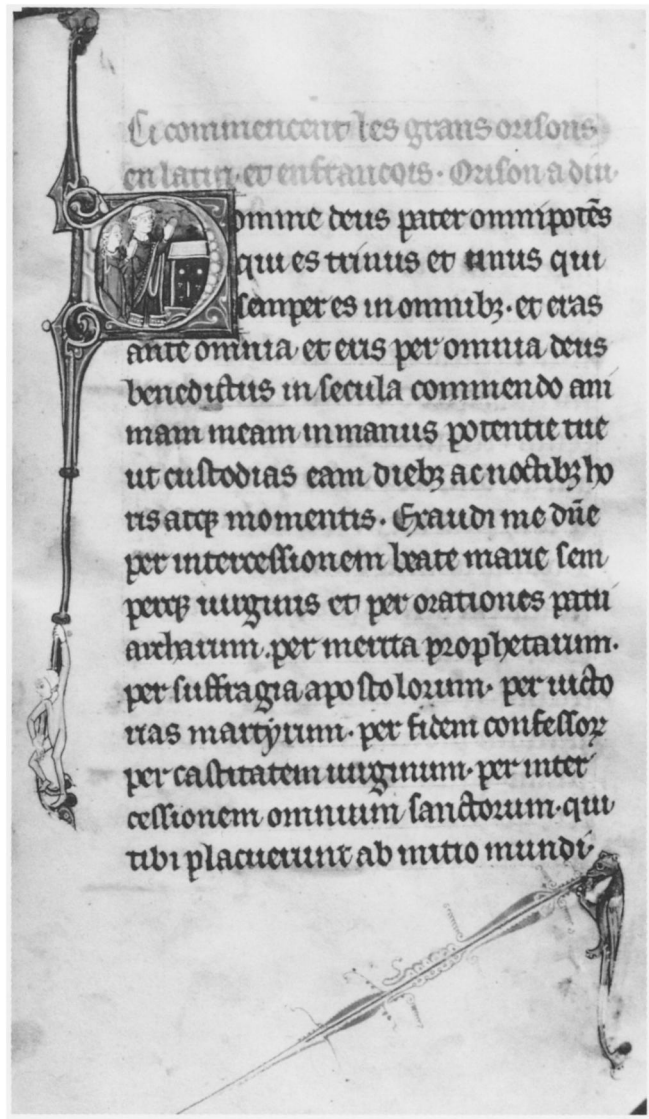 Ci commencent les grans orisons
en latin. et en francois. Orison a diu.
Domine deus pater omnipotēs
qui es trinus et unus qui
semper es in omnibꝫ. et eras
ante omnia et eris per omnia deus
benedictus in secula commendo ani
mam meam in manus potentie tue
ut custodias eam diebꝫ ac noctibꝫ ho
ris atqꝫ momentis. Exaudi me dn̄e
per intercessionem beate marie sem
perqꝫ uirginis et per orationes patri
archarum. per merita prophetarum.
per suffragia apostolorum. per uicto
rias martyrum. per fidem confessoꝝ
per castitatem uirginum. per inter
cessionem omnium sanctorum. qui
tibi placuerunt ab initio mundi.